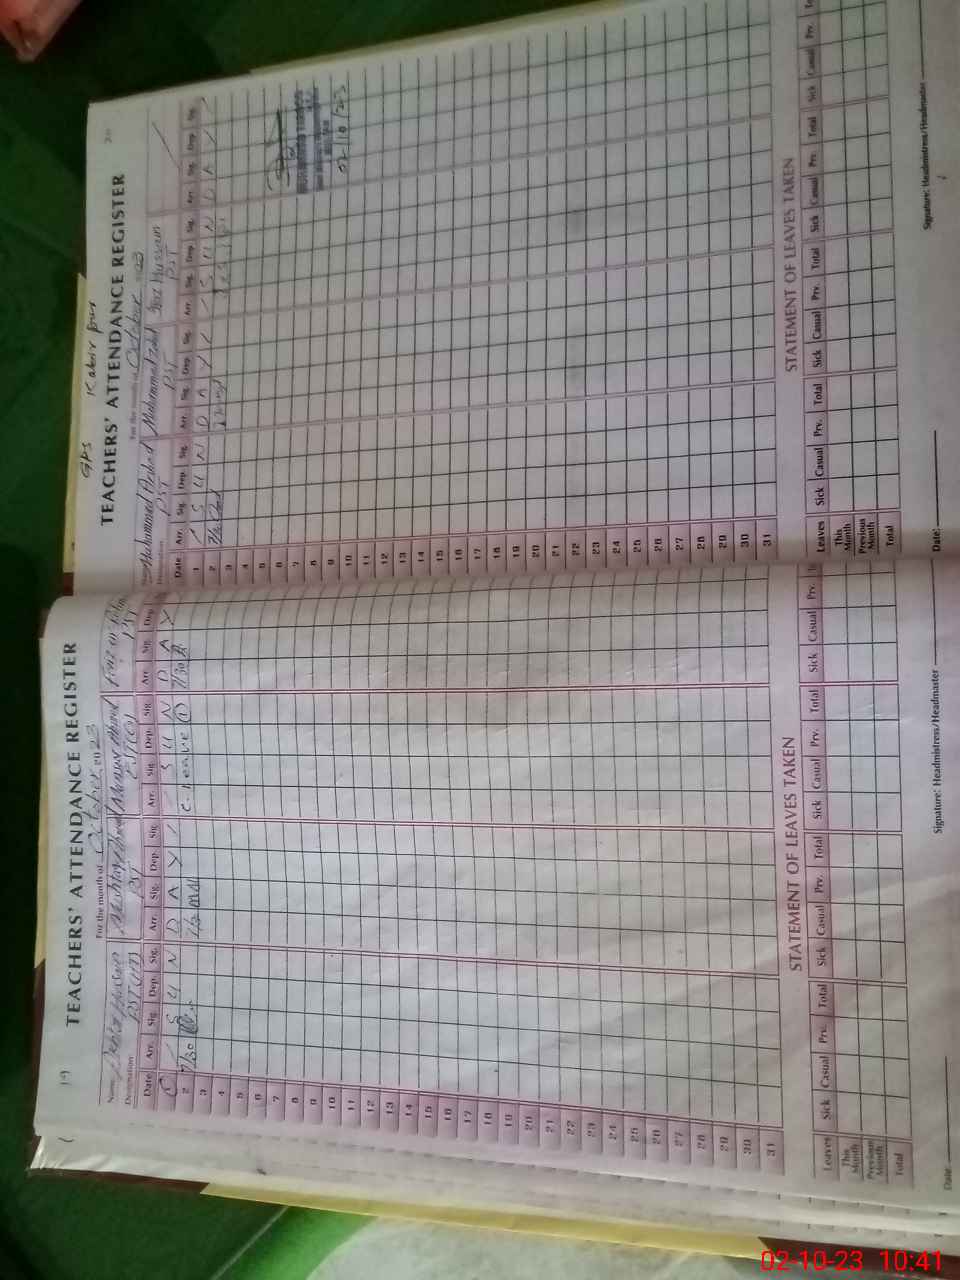 19
TEACHERS' ATTENDANCE REGISTER
For the month of October 2023
Name Hussain Mushtaq Ahmed Manzoor Ahmed
Designation: PST PST
Date Arr. Sig. Dep. Sig. Arr. Sig. Dep. Sig. Arr. Sig. Dep. Sig. Arr. Sig. Dep.
1 S U N D A Y S U N D A Y
2 7/30 C-Leave (1) 7/30
3
4
5
6
7
8
9
10
11
12
13
14
15
16
17
18
19
20
21
22
23
24
25
26
27
28
29
30
31
STATEMENT OF LEAVES TAKEN
Leaves Sick Casual Prv. Total Sick Casual Prv. Total Sick Casual Prv. Total Sick Casual Prv.
This Month
Previous Month
Total
Date: Signature: Headmistress/Headmaster
GPS Kabir pur
20
TEACHERS' ATTENDANCE REGISTER
For the month of October 2023
Muhammad Arshad Muhammad Hussain
Designation: PST PST PST
Date Arr. Sig. Dep. Sig. Arr. Sig. Dep. Sig. Arr. Sig. Dep. Sig. Arr. Sig. Dep. Sig.
1 S U N D A Y S U N D A Y
2
3
4
5
6
7
8
9
10
11
12
13
14
15
16
17
18
19
20
21
22
23
24
25
26
27
28
29
30
31
02/10/2023
STATEMENT OF LEAVES TAKEN
Leaves Sick Casual Prv. Total Sick Casual Prv. Total Sick Casual Prv. Total Sick Casual Prv.
This Month
Previous Month
Total
Date: Signature: Headmistress/Headmaster
02-10-23 10:41